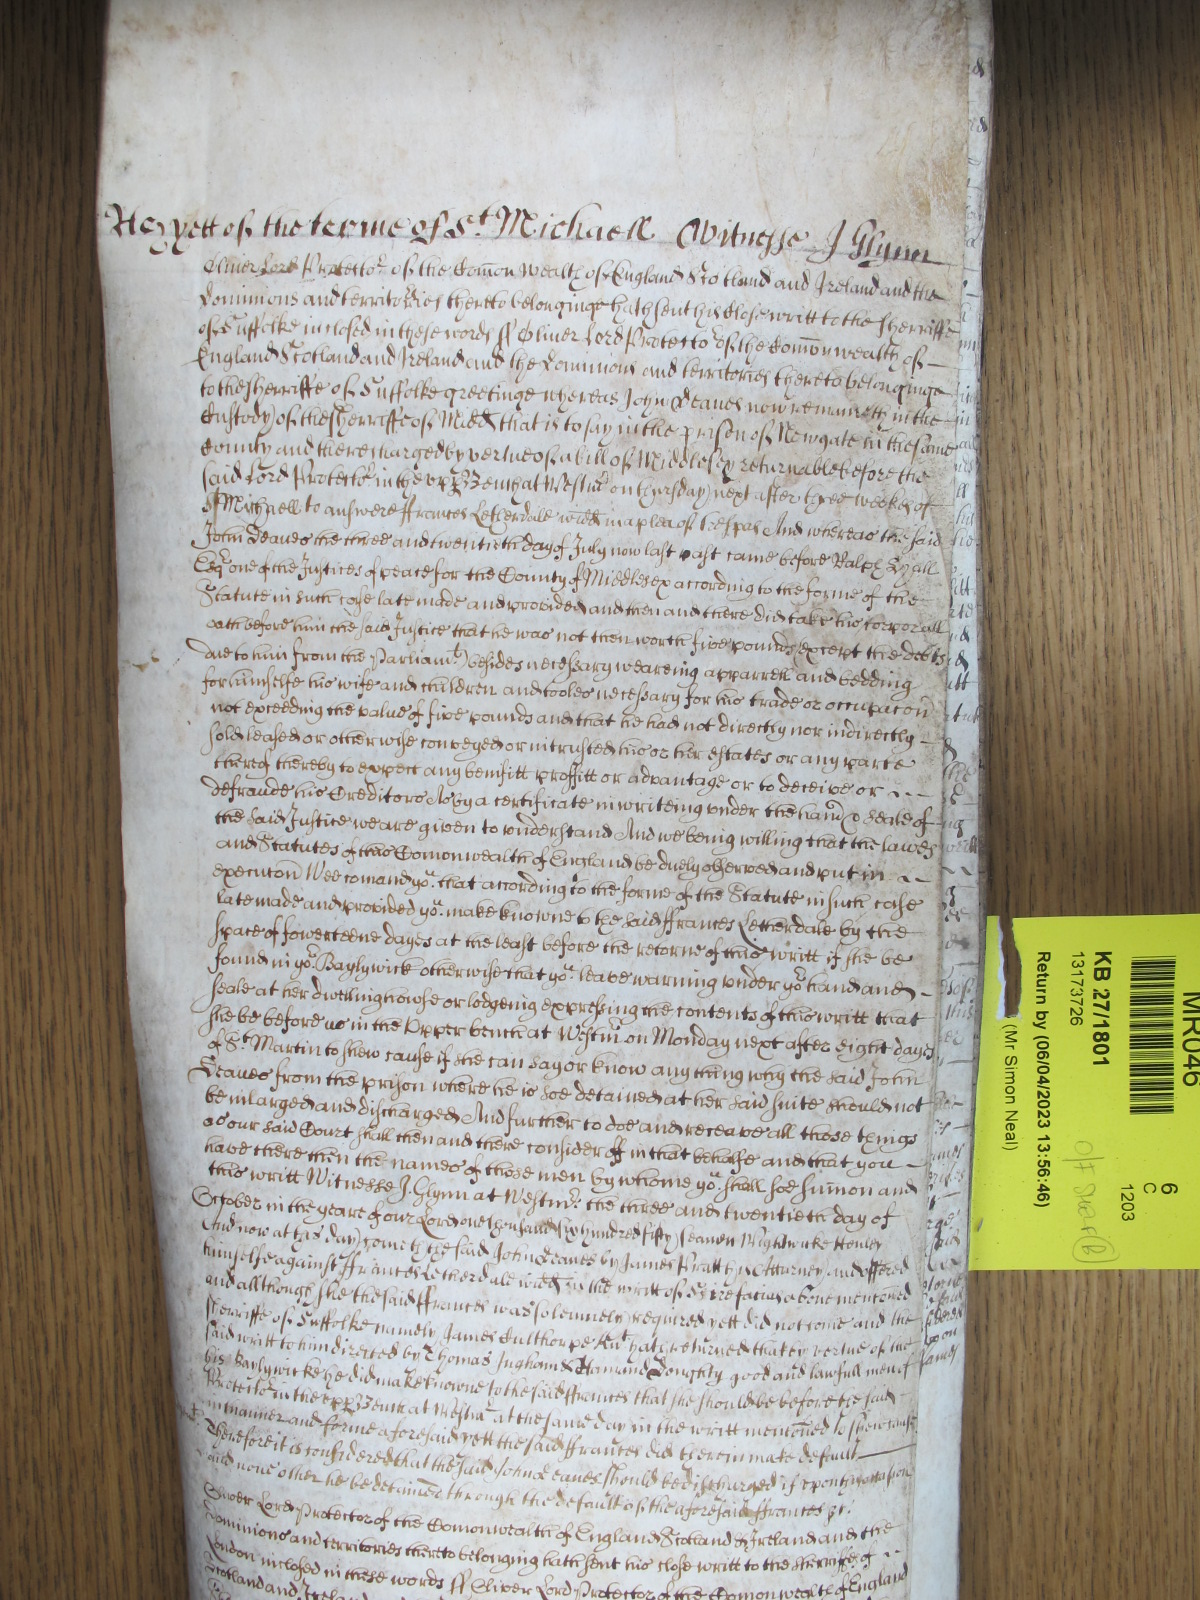 As yett of the terme of St. Michaell Witnesse J Glynn
Oliver Lord Protector of the Comon Wealth of England Scotland and Ireland and the
Dominions and territories thereto belonginge hath sent his close writt to the Sherriffe
of Suffolke inclosed in these words ss Oliver Lord Protector of the Comonwealth of
England Scotland and Ireland and the Dominions and territories thereto belonginge
to the Sherriffe of Suffolke greetinge whereas John Deaves now remaineth in the
Custody of the Sherriffe of Midd that is to say in the prison of Newgate in the same
County and there charged by vertue of a bill of Middlesex returnable before the
said Lord Protector in the upper Bench at Westmr on thursday next after three weekes of
St Michaell to answere ffrances Letherdale widd in a plea of trespas And whereas the said
John Deaves the three and twentieth day of July now last past came before Ralph
Esqr one of the Justices of peace for the County of Middlesex according to the forme of the
Statute in such case late made and provided and then and there did take his corporall
oath before him the said Justice that he was not then worth five pounds (except the debts
due to him from the Parliamt) besides necessary weareing apparrell and bedding
for himselfe his wife and children and tooles necessary for his trade or occupacon
not exceeding the value of five pounds and that he had not directly nor indirectly
sold leased or otherwise conveyed or intrusted his or her estates or any parte
thereof thereby to expect any benifitt proffitt or advantage or to deceive or
defraude his Creditors As by a certificate in writeing under the hand & seale of
the said Justice we are given to understand And we being willing that the lawes
and Statutes of this Comonwealth of England be duely observed and put in
execucon Wee comand yo. that according to the forme of the Statute in such case
late made and provided yo. make knowne to the said ffrances Letherdale by the
space of fowerteene dayes at the least before the retorne of this writt if she be
found in yor. Baylywick otherwise that yo. leave warning under yor hand and
seale at her dwelling howse or lodgeing expressing the contents of this writt that
she be before us in the Upper bench at Westmr on Monday next after eight dayes
of St. Martin to shew cause if she can say or know any thing why the said John
Deaves from the prison where he is soe detained at her said suite should not
be inlarged and discharged And further to doe and receave all those things
as our said Court shall then and there consider off in that behalfe and that you
have there then the names of those men by whome yo. shall soe sumon and
this writt Witnesse J. Glynn at Westmr. the three and twentieth day of
October in the yeare of our Lord one thousand six hundred fifty seaven Wightwicke Henley
And now at this day come th the said John Deaves by James Pratt his Attorney and offered
himselfe against ffrances Letherdale widd in the writt of Scire facias above mentioned
and allthough she the said ffrances was solemnely required yett did not come and the
Sherriffe of Suffolke namely James Culthorpe hath returned that by vertue of the
said writt to him directed by Thomas Ingham & Hamand Doughty good and lawfull men of
his Baylywicke he did make knowne to the said ffrances that she should be before the said
Protector in the upper Bench at Westmr at the same day in the writt mentioned to shew cause
in manner and forme aforesaid yett the said ffrances did therein make default
Therefore it is considered that the said John Deaves should be discharged if upon that occasion
and none other he be detained through the default of the aforesaid ffrances &c.
Oliver Lord Protector of the Comonwealth of England Scotland & Ireland and the
Dominions and territories thereto belonging hath sent his close writt to the Sherriffes of
London inclosed in these words ss Oliver Lord Protector of the Comonwealth of England
Scotland and Ireland
MR046
KB 27/1801
13173726
Return by (06/04/2023 13:56:46)
(Mr Simon Neal)
6
C
1203